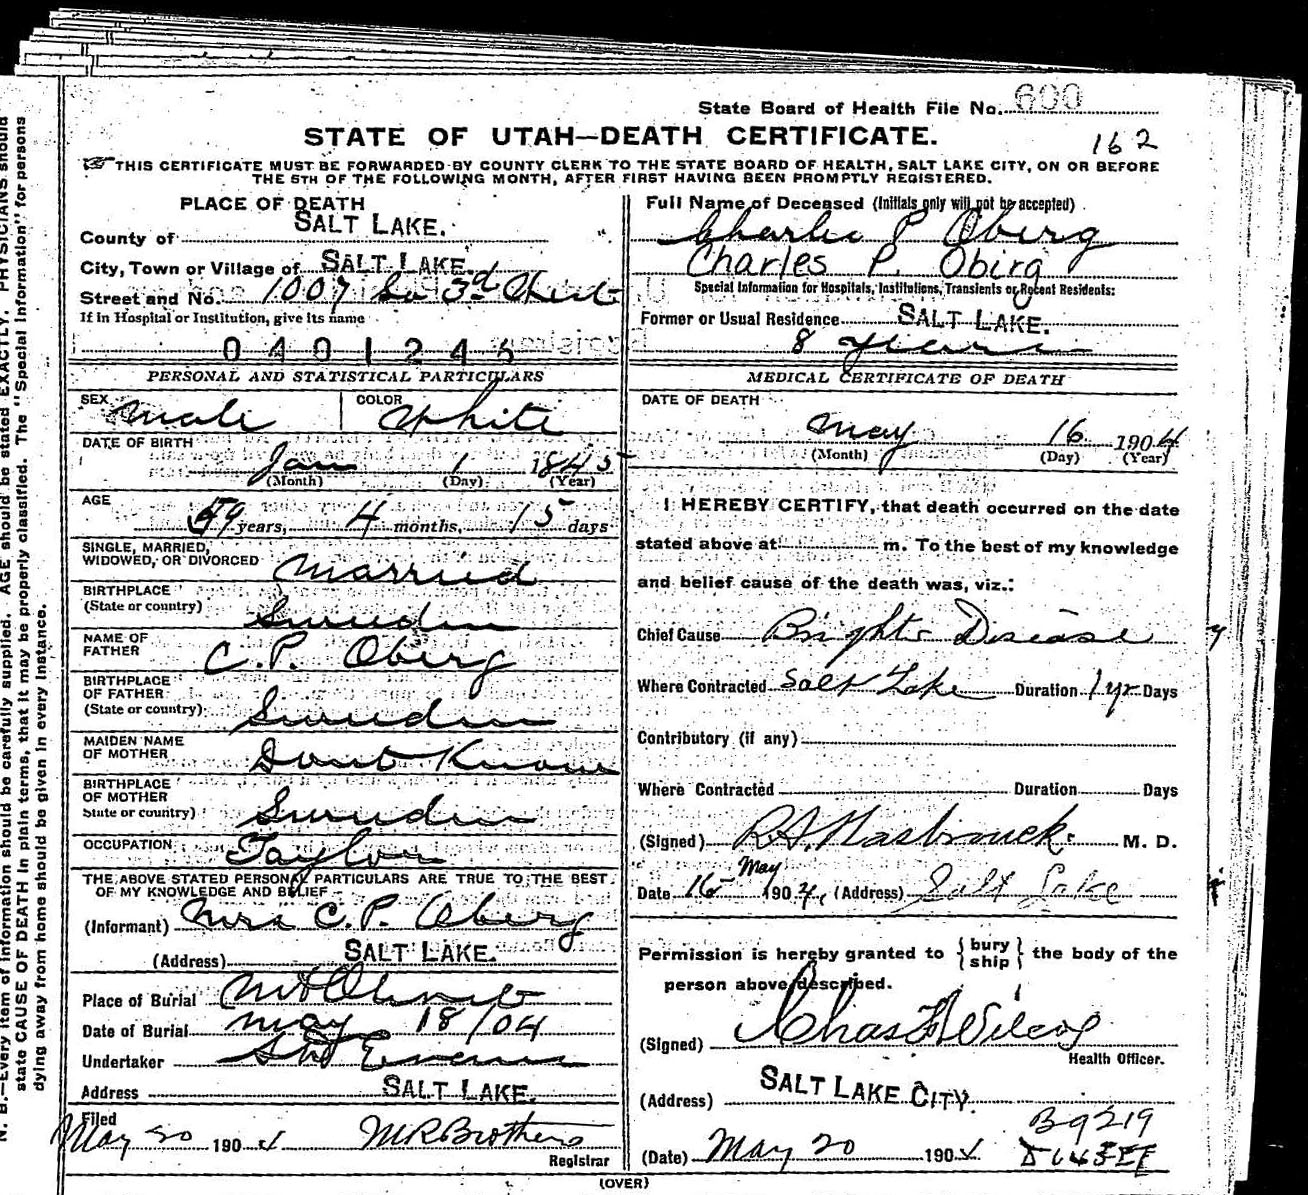 State Board of Health File No. 600
STATE OF UTAH—DEATH CERTIFICATE.
162
☞ THIS CERTIFICATE MUST BE FORWARDED BY COUNTY CLERK TO THE STATE BOARD OF HEALTH, SALT LAKE CITY, ON OR BEFORE
THE 5TH OF THE FOLLOWING MONTH, AFTER FIRST HAVING BEEN PROMPTLY REGISTERED.
PLACE OF DEATH
County of SALT LAKE.
City, Town or Village of SALT LAKE.
Street and No. 1007 So 3rd
If in Hospital or Institution, give its name
0401245
PERSONAL AND STATISTICAL PARTICULARS
SEX Male COLOR White
DATE OF BIRTH
Jan 1 1845
(Month) (Day) (Year)
AGE
59 years, 4 months, 15 days
SINGLE, MARRIED,
WIDOWED, OR DIVORCED Married
BIRTHPLACE
(State or country) Sweden
NAME OF
FATHER C. P. Oberg
BIRTHPLACE
OF FATHER
(State or country) Sweden
MAIDEN NAME
OF MOTHER Dont Know
BIRTHPLACE
OF MOTHER
State or country) Sweden
OCCUPATION Taylor
THE ABOVE STATED PERSONAL PARTICULARS ARE TRUE TO THE BEST
OF MY KNOWLEDGE AND BELIEF
(Informant) Mrs C. P. Oberg
(Address) SALT LAKE.
Place of Burial Mt Olivet
Date of Burial May 18/04
Undertaker
Address SALT LAKE.
Filed
May 20 1904 M R Brothers
Registrar
Full Name of Deceased (Initials only will not be accepted)
Charlie P Oberg
Charles P. Obirg
Special Information for Hospitals, Institutions, Transients or Recent Residents:
Former or Usual Residence SALT LAKE.
8 years
MEDICAL CERTIFICATE OF DEATH
DATE OF DEATH
May 16 1904
(Month) (Day) (Year)
I HEREBY CERTIFY, that death occurred on the date
stated above at m. To the best of my knowledge
and belief cause of the death was, viz.:
Chief Cause Brights Disease
Where Contracted Salt Lake Duration 1 yr Days
Contributory (if any)
Where Contracted Duration Days
(Signed) R. A. Hasbrouck M. D.
Date 16 May 1904, (Address) Salt Lake
Permission is hereby granted to { bury
ship } the body of the
person above described.
(Signed) Chas F Wilcox
Health Officer.
(Address) SALT LAKE CITY.
B9219
(Date) May 20 1904
(OVER)
N. B.—Every item of information should be carefully supplied. AGE should be stated EXACTLY. PHYSICIANS should
state CAUSE OF DEATH in plain terms, that it may be properly classified. The "Special Information" for persons
dying away from home should be given in every instance.